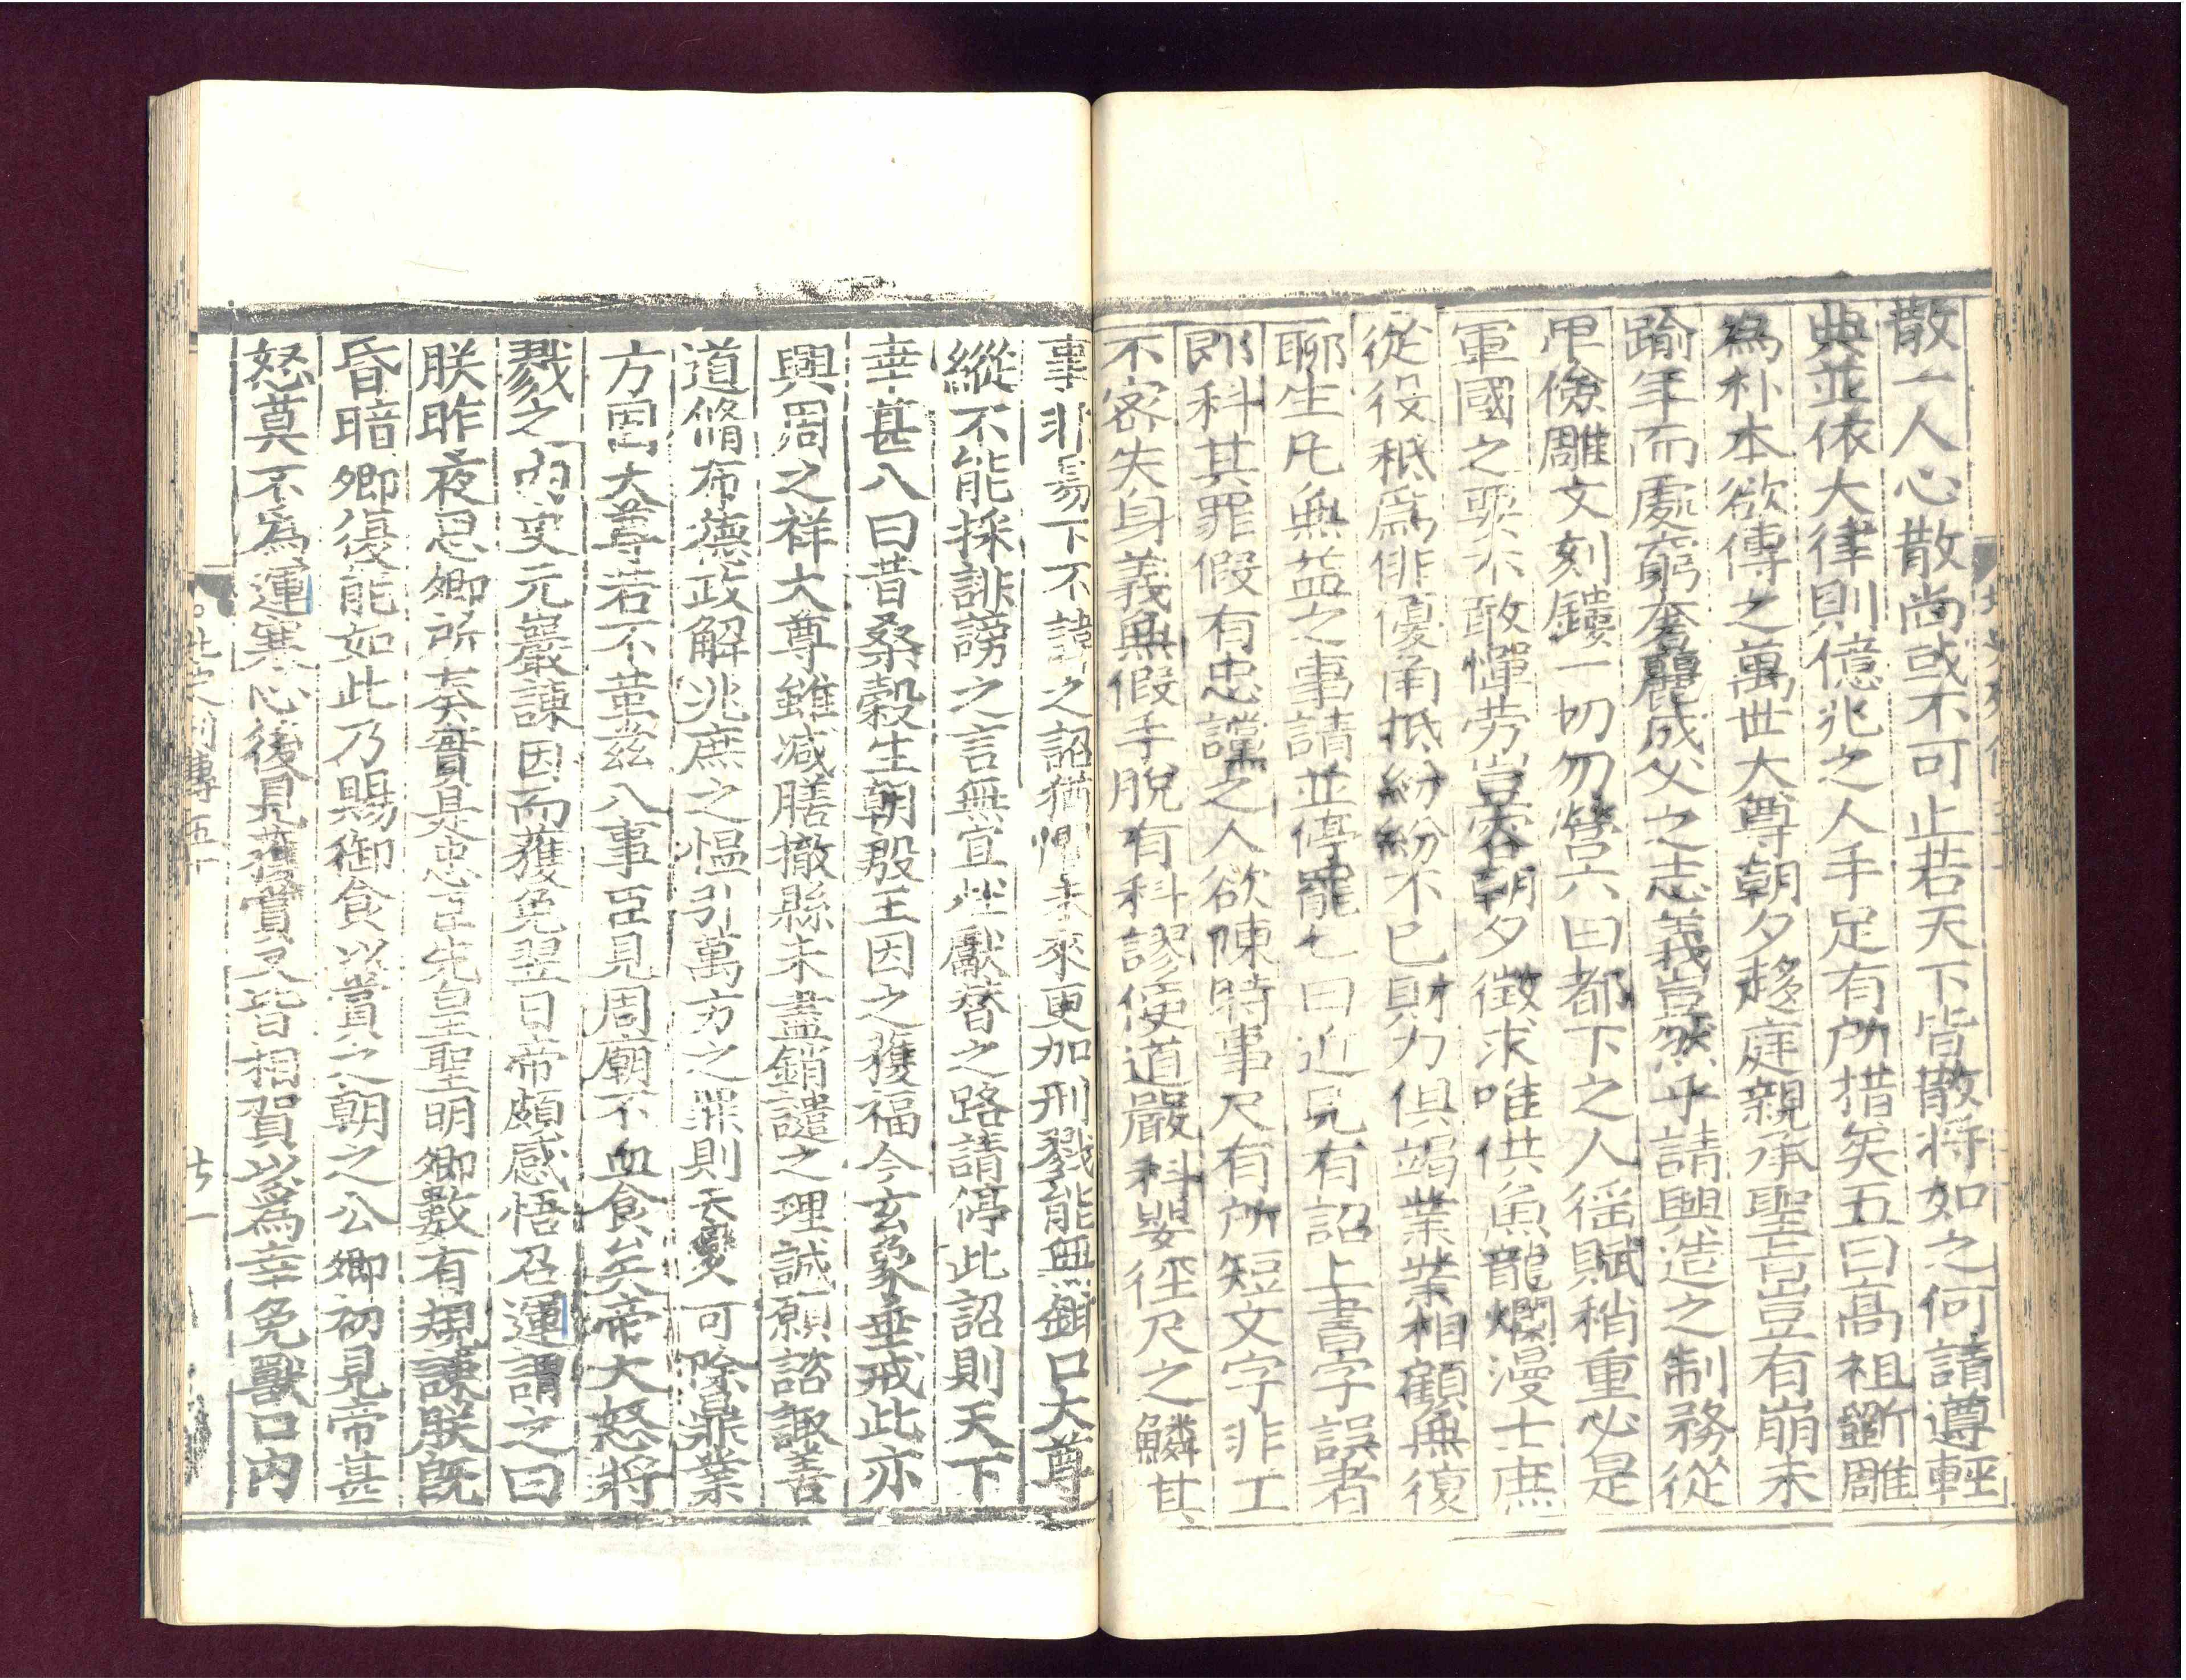 散一人心散尚或不可止若天下皆散將如之何請遵輕
典並依大律則億兆之人手足有所措矣五曰高祖斲雕
為朴本欲傳之萬世大尊朝夕趍庭親承聖旨豈有崩未
踰年而處窮奢麗成父之志義豈然乎請興造之制務從
甲儉雕文刻鏤一切勿營六曰都下之人徭賦稍重必是
軍國之要不敢憚勞豈容朝夕徵求唯供魚龍爛漫士庶
從役秪為俳優角抵紛紛不已財力俱竭業業相顧無復
聊生凡無益之事請並停罷七曰近見有詔上書字誤者
即科其罪假有忠讜之人欲陳時事尺有所短文字非工
不密失身義無假手脫有科謬便道嚴科嬰徑尺之鱗其
事非易下不諱之詔猶懼未來更加刑戮能無鉗口大尊
縱不能採誹謗之言無宜坐獻替之路請停此詔則天下
幸甚八曰昔桑穀生朝殷王因之獲福今玄象垂戒此亦
興周之祥大尊雖減膳撤縣未盡銷譴之理誠願諮諏善
道脩布德政解兆庶之慍引萬方之罪則天變可除鼎業
方固大尊若不革茲八事臣見周廟不血食矣帝大怒將
戮之內史元巖諫因而獲免翌日帝頗感悟召運謂之曰
朕昨夜思卿所奏實是忠言先皇聖明卿數有規諫朕既
昏暗卿復能如此乃賜御食以賞之朝之公卿初見帝甚
怒莫不為運寒心後見獲賞又皆相賀以為幸免獸口內
北史列傳五十
七一